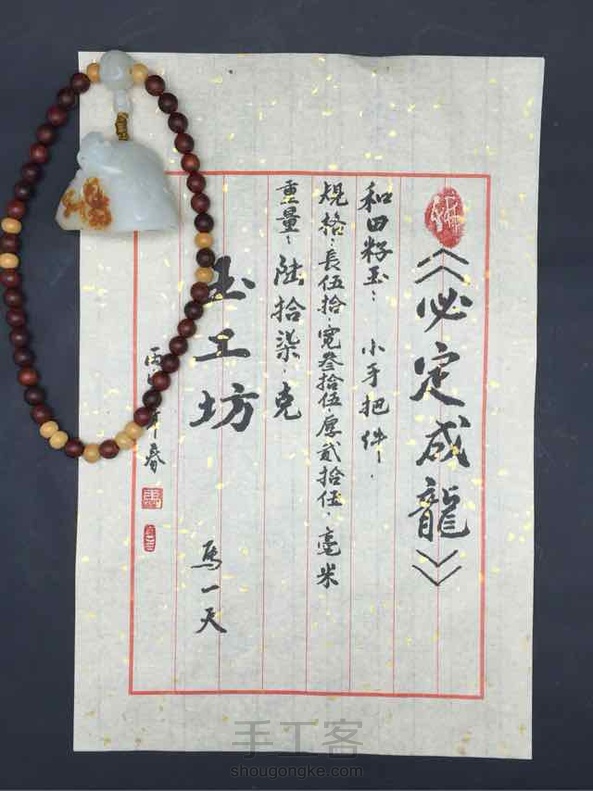 《必定成龍》
和田籽玉：小手把件．
規格：長伍拾．寬叄拾伍．厚貳拾伍．毫米
重量：陸拾柒．克
玉工坊 馬一天
丙年春
手工客
shougongke.com